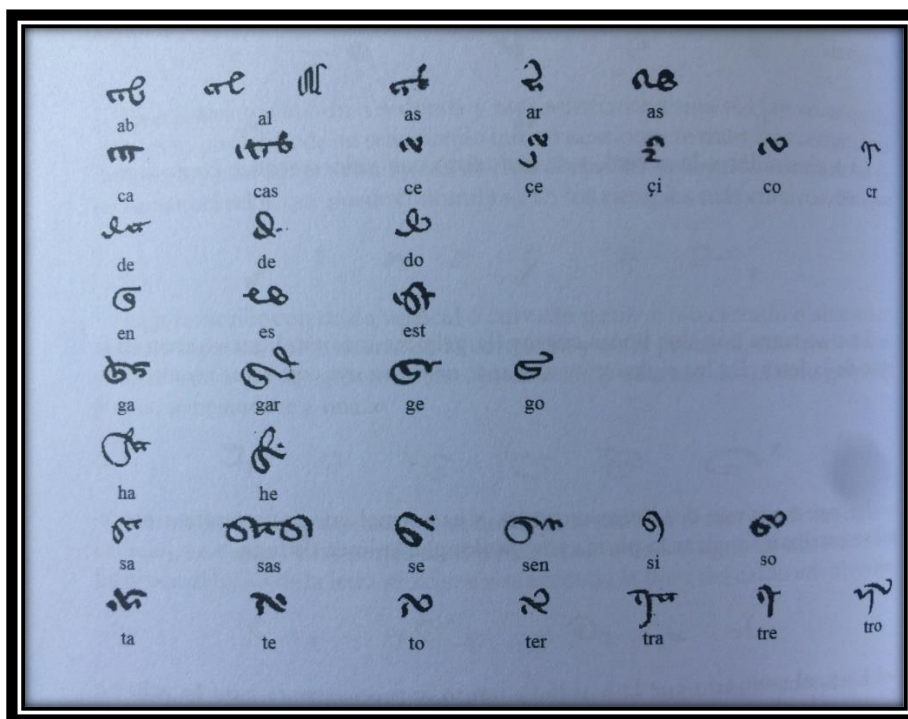 ab al as ar as
ca cas ce çe çi co cr
de de do
en es est
ga gar ge go
ha he
sa sas se sen si so
ta te to ter tra tre tro